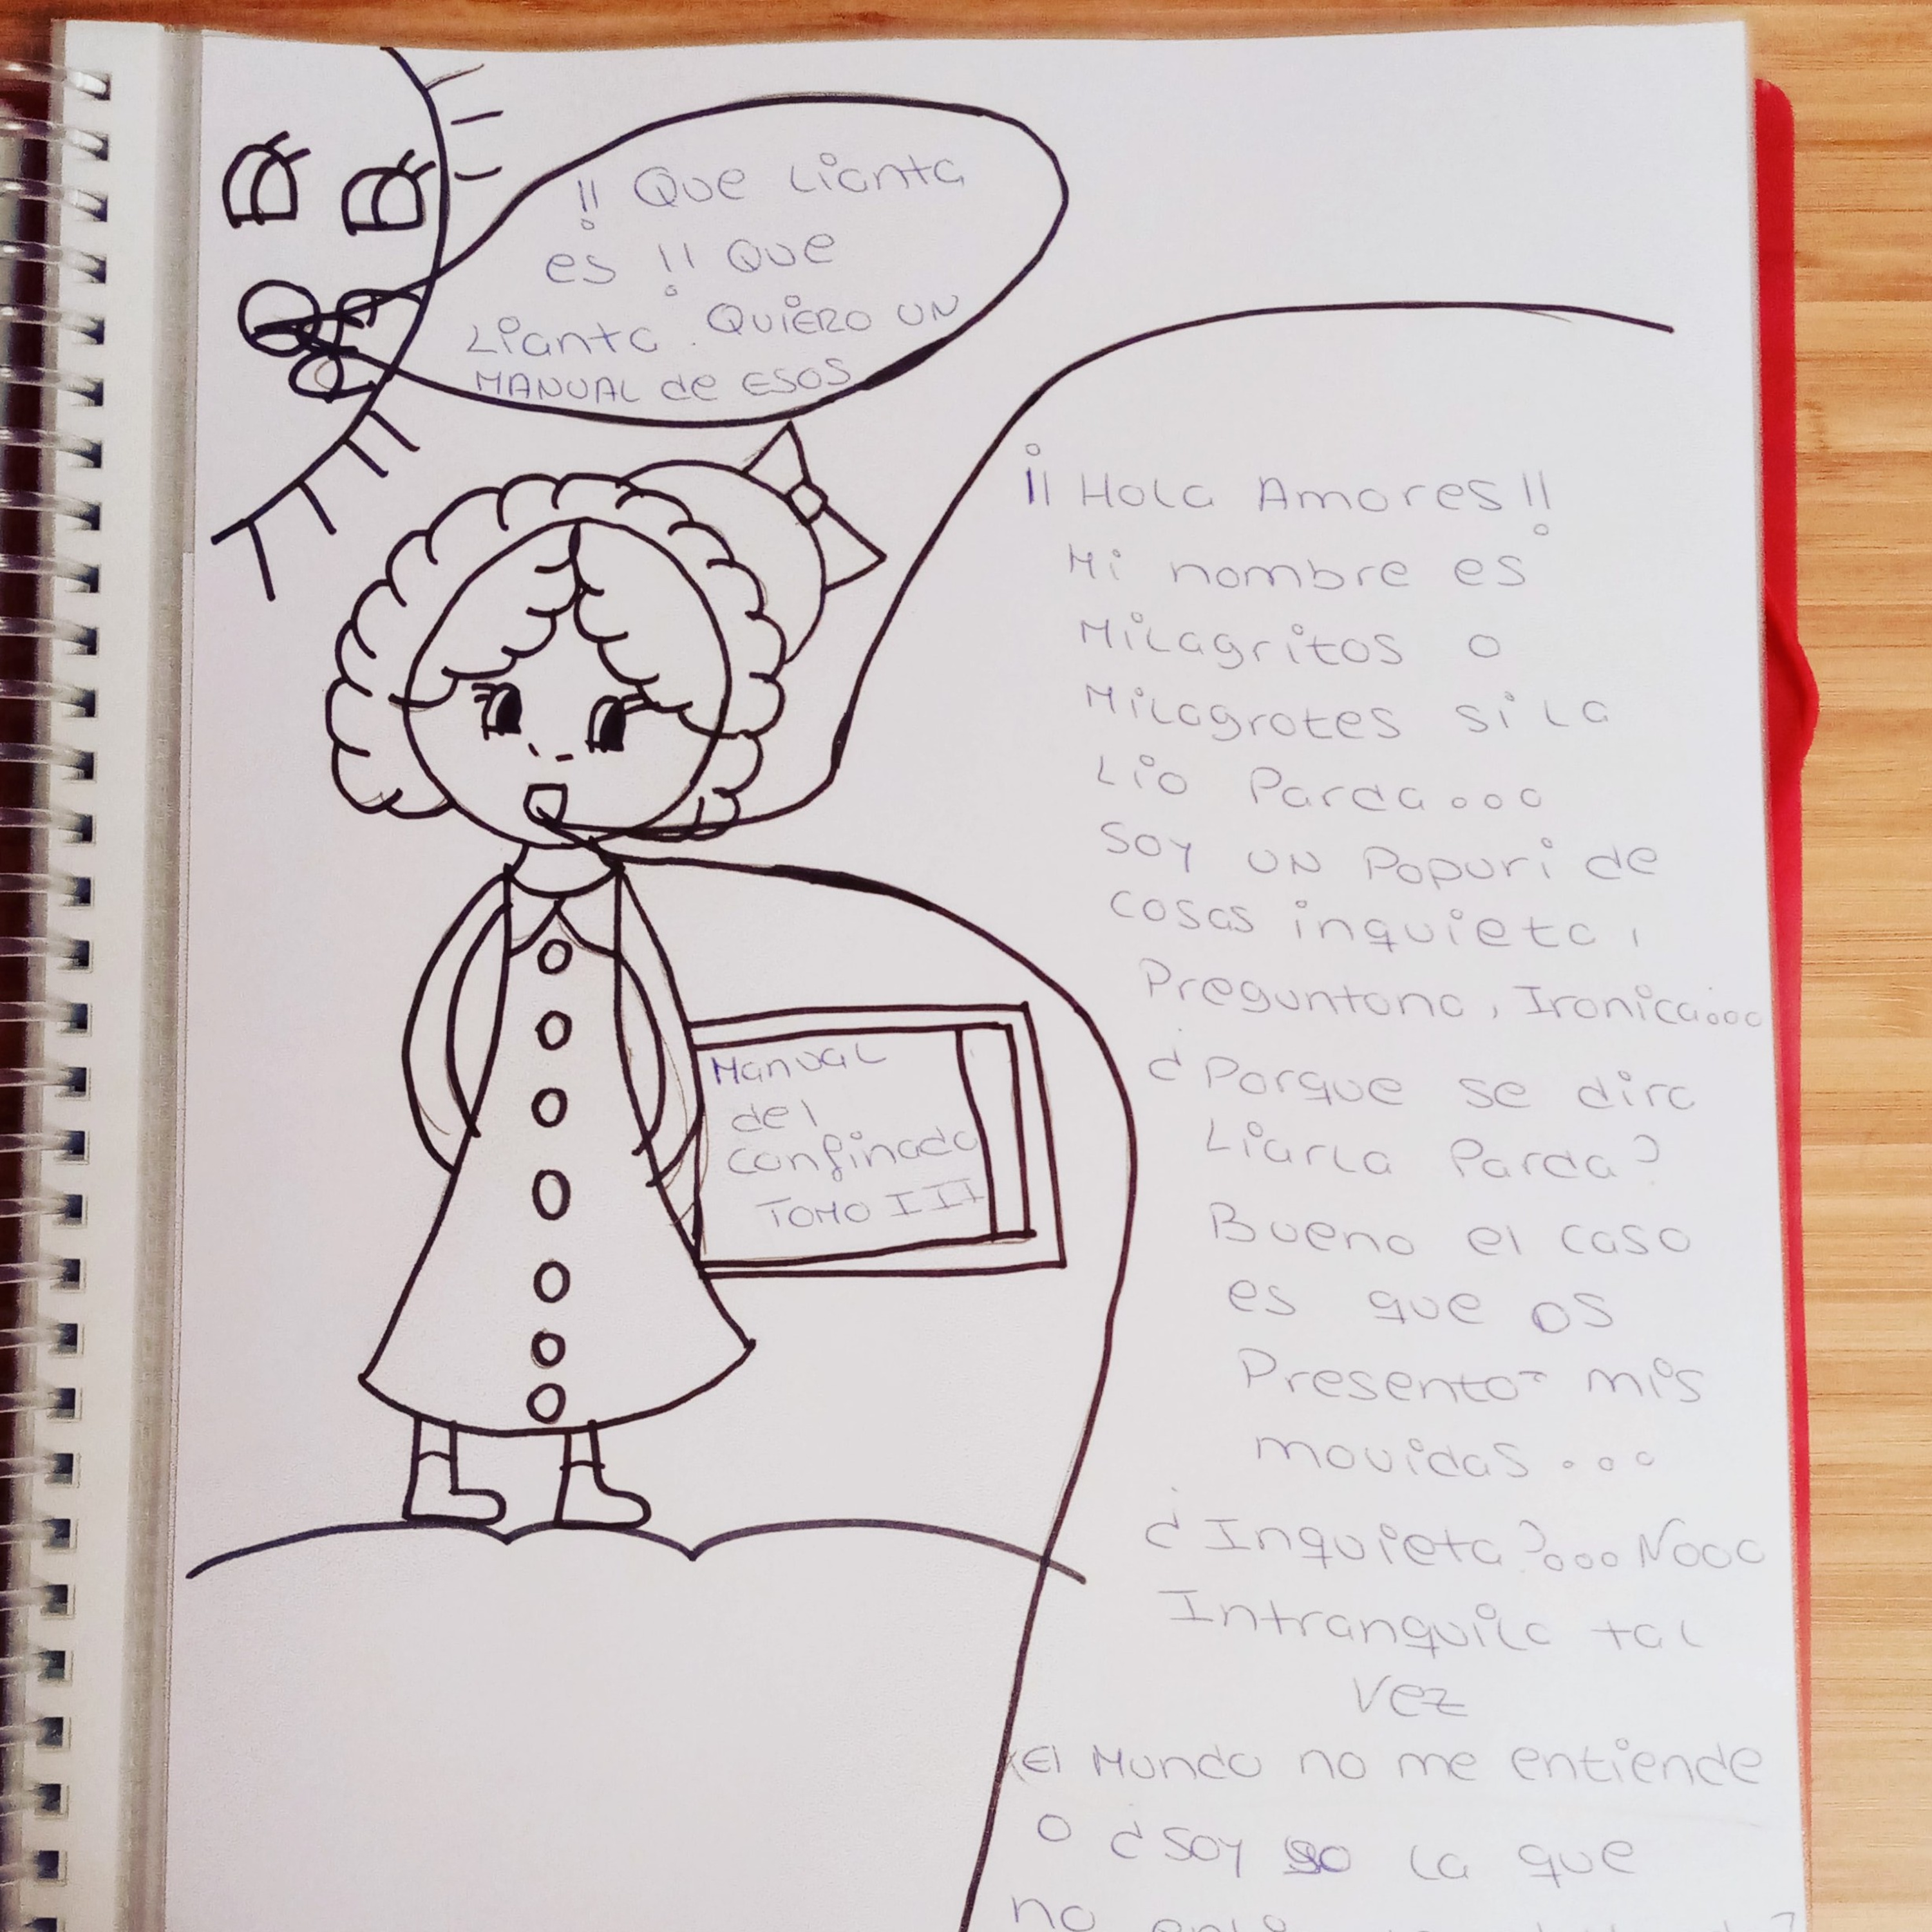 ¡¡ Que Lianta
es !! Que
Lianta. QUiERO UN
MANUAL de ESOS
¡¡ Hola Amores!!
Mi nombre es
Milagritos o
Milagrotes si la
Lio Parda...
Soy UN Popuri de
cosas inquieta,
Preguntona, Ironica...
¿Porque se dira
Liarla Parda?
Bueno el caso
es que os
Presento mis
movidas...
¿Inquieta?... Nooo
Intranquila tal
vez
Manual
del
confinado
TOMO III
El Mundo no me entiende
o ¿soy yo la que
no